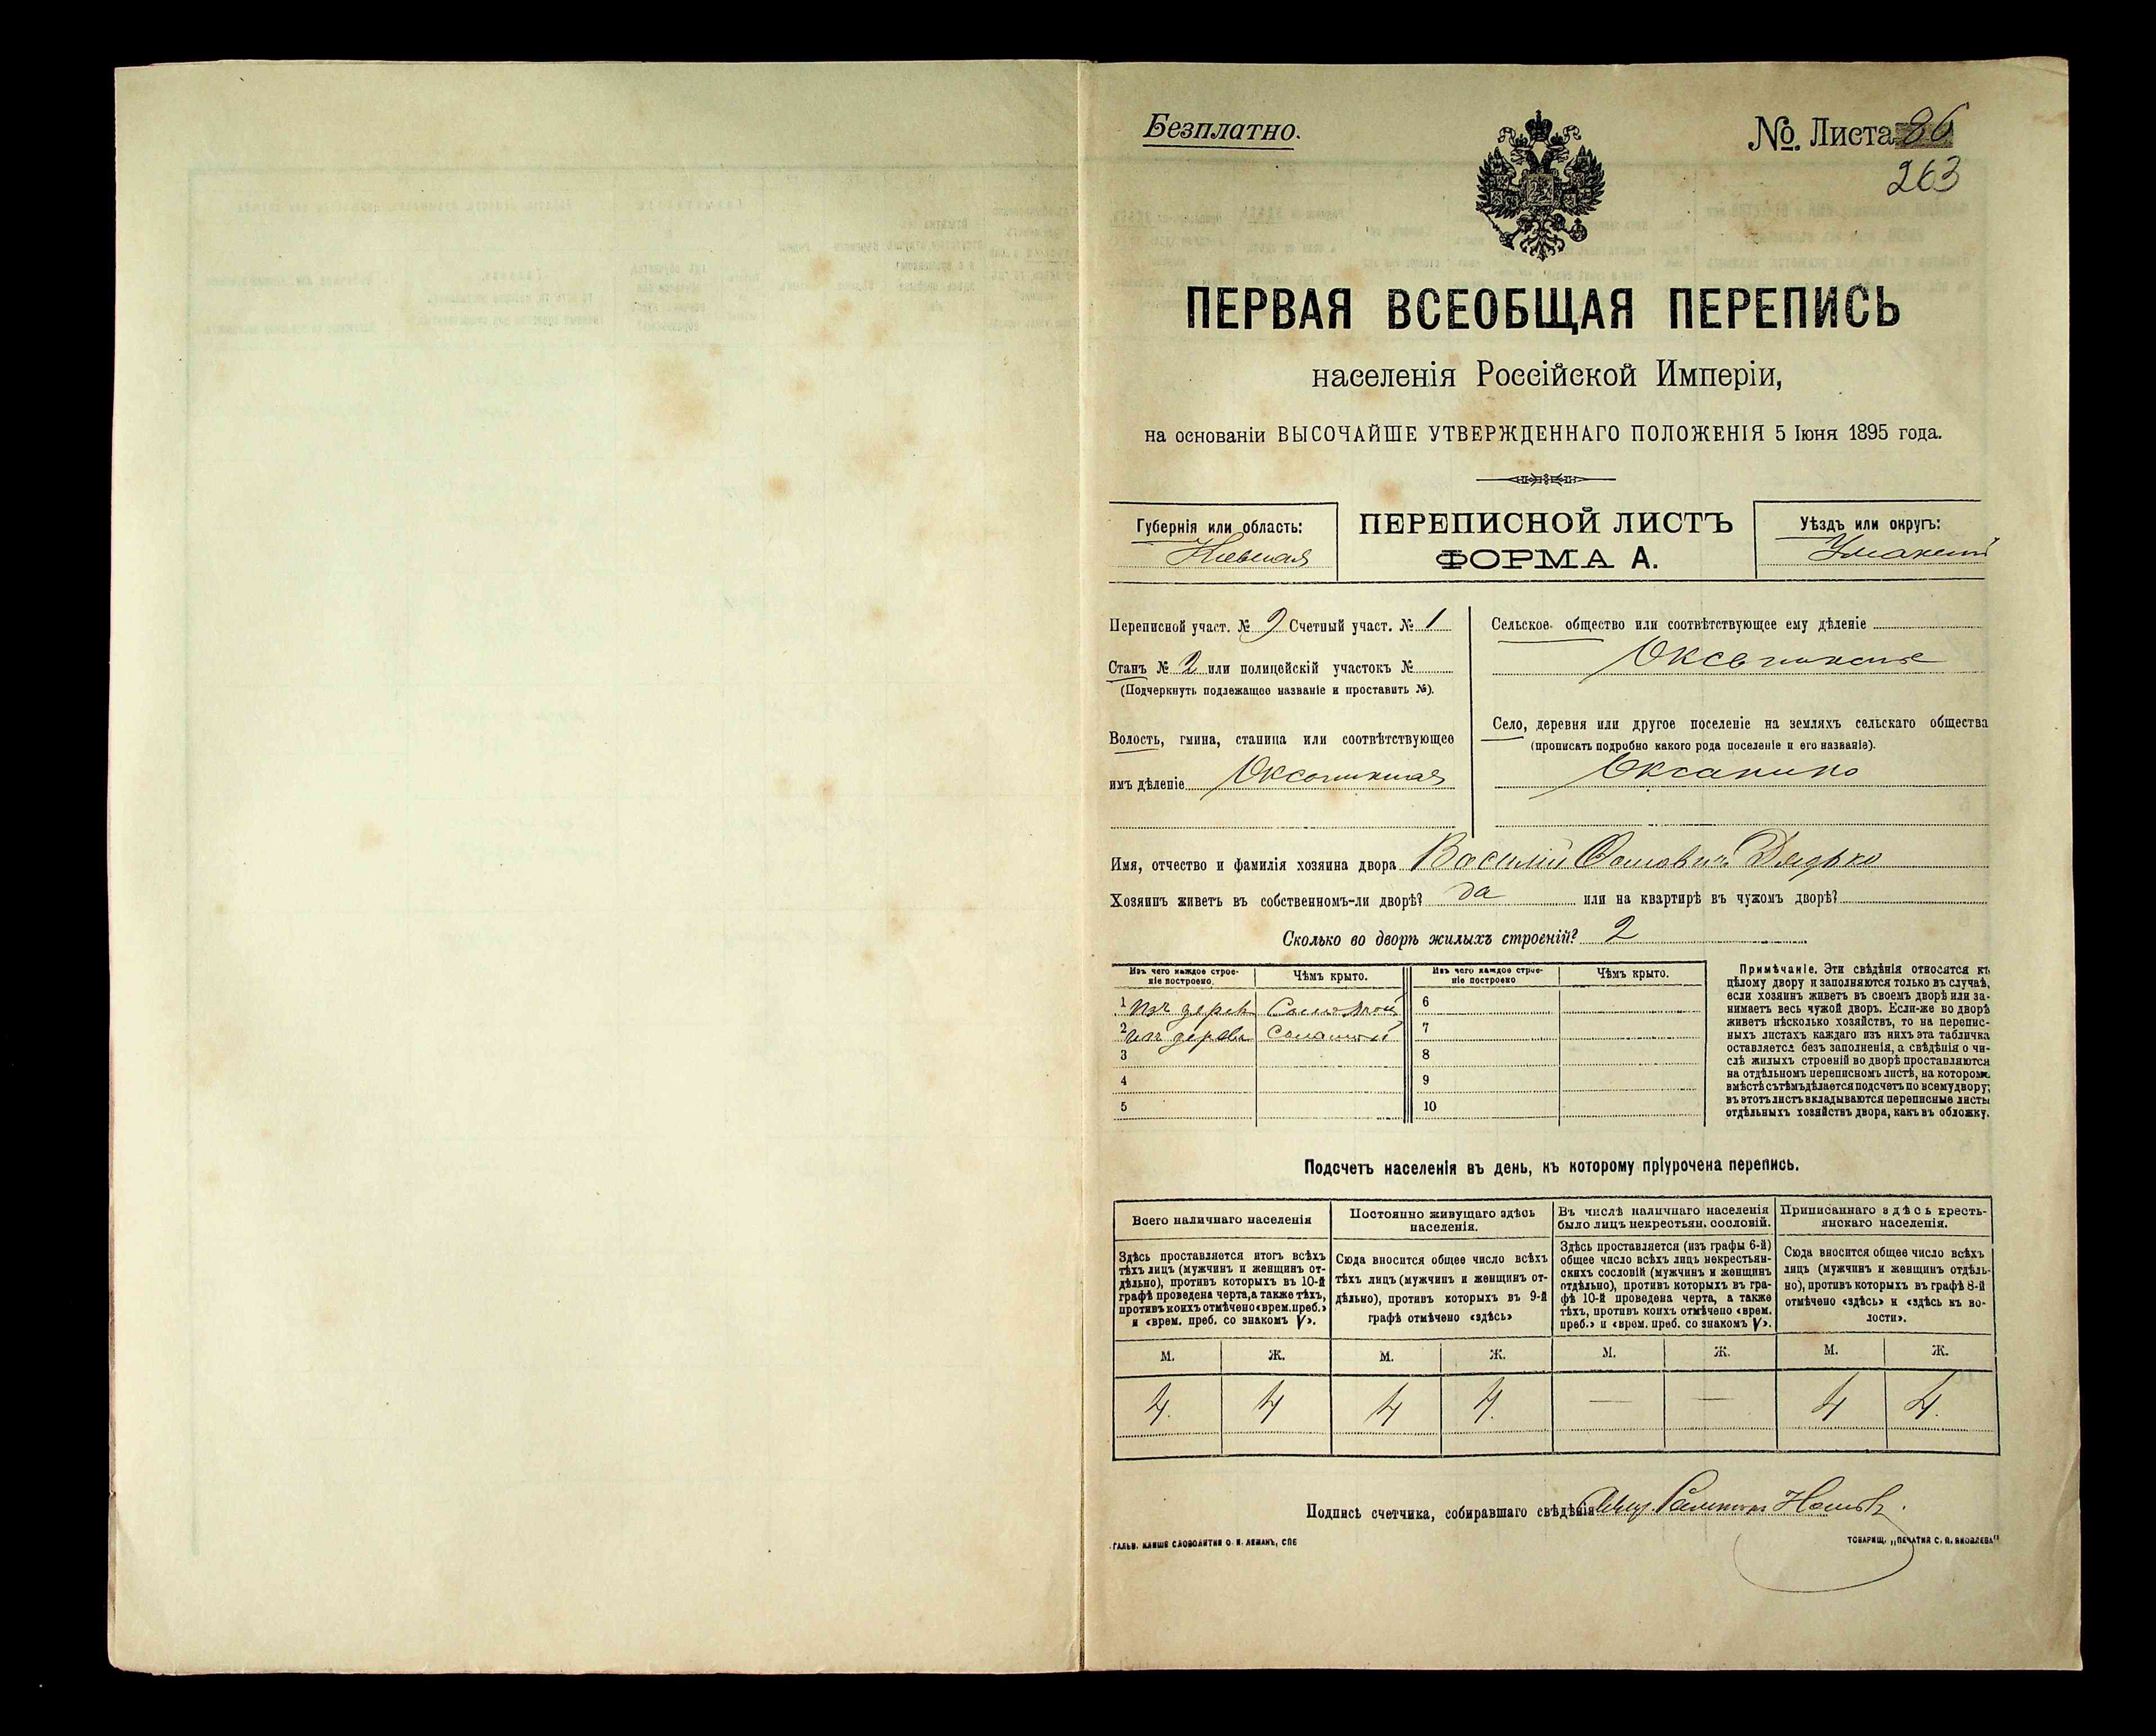 Безплатно.
№. Листа 86
263
ПЕРВАЯ ВСЕОБЩАЯ ПЕРЕПИСЬ
населенія Россійской Имперіи,
на основаніи ВЫСОЧАЙШЕ УТВЕРЖДЕННАГО ПОЛОЖЕНІЯ 5 Іюня 1895 года.
Губернія или область:
Кіевская
ПЕРЕПИСНОЙ ЛИСТЪ
ФОРМА А.
Уѣздъ или округъ:
Уманскій
Переписной участ. № 9 Счетный участ. № 1
Станъ № 2 или полицейскій участокъ №
(Подчеркнуть подлежащее названіе и проставить №).
Волость, гмина, станица или соотвѣтствующее
имъ дѣленіе
Сельское общество или соотвѣтствующее ему дѣленіе
Село, деревня или другое поселеніе на земляхъ сельскаго общества
(прописать подробно какого рода поселеніе и его названіе).
Оксанино
Имя, отчество и фамилія хозяина двора Василій Дядько
Хозяинъ живетъ въ собственномъ-ли дворѣ? да или на квартирѣ въ чужомъ дворѣ?
Сколько во дворѣ жилыхъ строеній? 2
Изъ чего каждое строе-
ніе построено.
Чѣмъ крыто.
Изъ чего каждое строе-
ніе построено
Чѣмъ крыто.
1 Изъ дерев Соломой
6
2 изъ дерева Соломой
7
3
8
4
9
5
10
Примѣчаніе. Эти свѣдѣнія относятся къ
цѣлому двору и заполняются только въ случаѣ,
если хозяинъ живетъ въ своемъ дворѣ или за-
нимаетъ весь чужой дворъ. Если-же во дворѣ
живетъ нѣсколько хозяйствъ, то на перепис-
ныхъ листахъ каждаго изъ нихъ эта табличка
оставляется безъ заполненія, а свѣдѣнія о чи-
слѣ жилыхъ строеній во дворѣ проставляются
на отдѣльномъ переписномъ листѣ, на которомъ
вмѣстѣ съ тѣмъ дѣлается подсчетъ по всему двору;
въ этотъ листъ вкладываются переписные листы
отдѣльныхъ хозяйствъ двора, какъ въ обложку.
Подсчетъ населенія въ день, къ которому пріурочена перепись.
Всего наличнаго населенія
Здѣсь проставляется итогъ всѣхъ
тѣхъ лицъ (мужчинъ и женщинъ от-
дѣльно), противъ которыхъ въ 10-й
графѣ проведена черта, а также тѣхъ,
противъ коихъ отмѣчено «врем. преб.»
и «врем. преб. со знакомъ V».
Постоянно живущаго здѣсь
населенія.
Сюда вносится общее число всѣхъ
тѣхъ лицъ (мужчинъ и женщинъ от-
дѣльно), противъ которыхъ въ 9-й
графѣ отмѣчено «здѣсь»
Въ числѣ наличнаго населенія
было лицъ некрестьян. сословій.
Здѣсь проставляется (изъ графы 6-й)
общее число всѣхъ лицъ некрестьян-
скихъ сословій (мужчинъ и женщинъ
отдѣльно), противъ которыхъ въ гра-
фѣ 10-й проведена черта, а также
тѣхъ, противъ коихъ отмѣчено «врем.
преб.» и «врем. преб. со знакомъ V».
Приписаннаго здѣсь кресть-
янскаго населенія.
Сюда вносится общее число всѣхъ
лицъ (мужчинъ и женщинъ отдѣль-
но), противъ которыхъ въ графѣ 8-й
отмѣчено «здѣсь» и «здѣсь къ во-
лости».
М. Ж. М. Ж. М. Ж. М. Ж.
4. 4 4 4. — — 4 4.
Подпись счетчика, собиравшаго свѣдѣнія
ГАЛЬВ. КЛИШЕ СЛОВОЛИТНИ О. И. ЛЕМАНЪ, СПБ
ТОВАРИЩ. „ПЕЧАТНЯ С. П. ЯКОВЛЕВА"